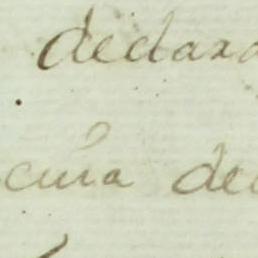 declara
cuia de